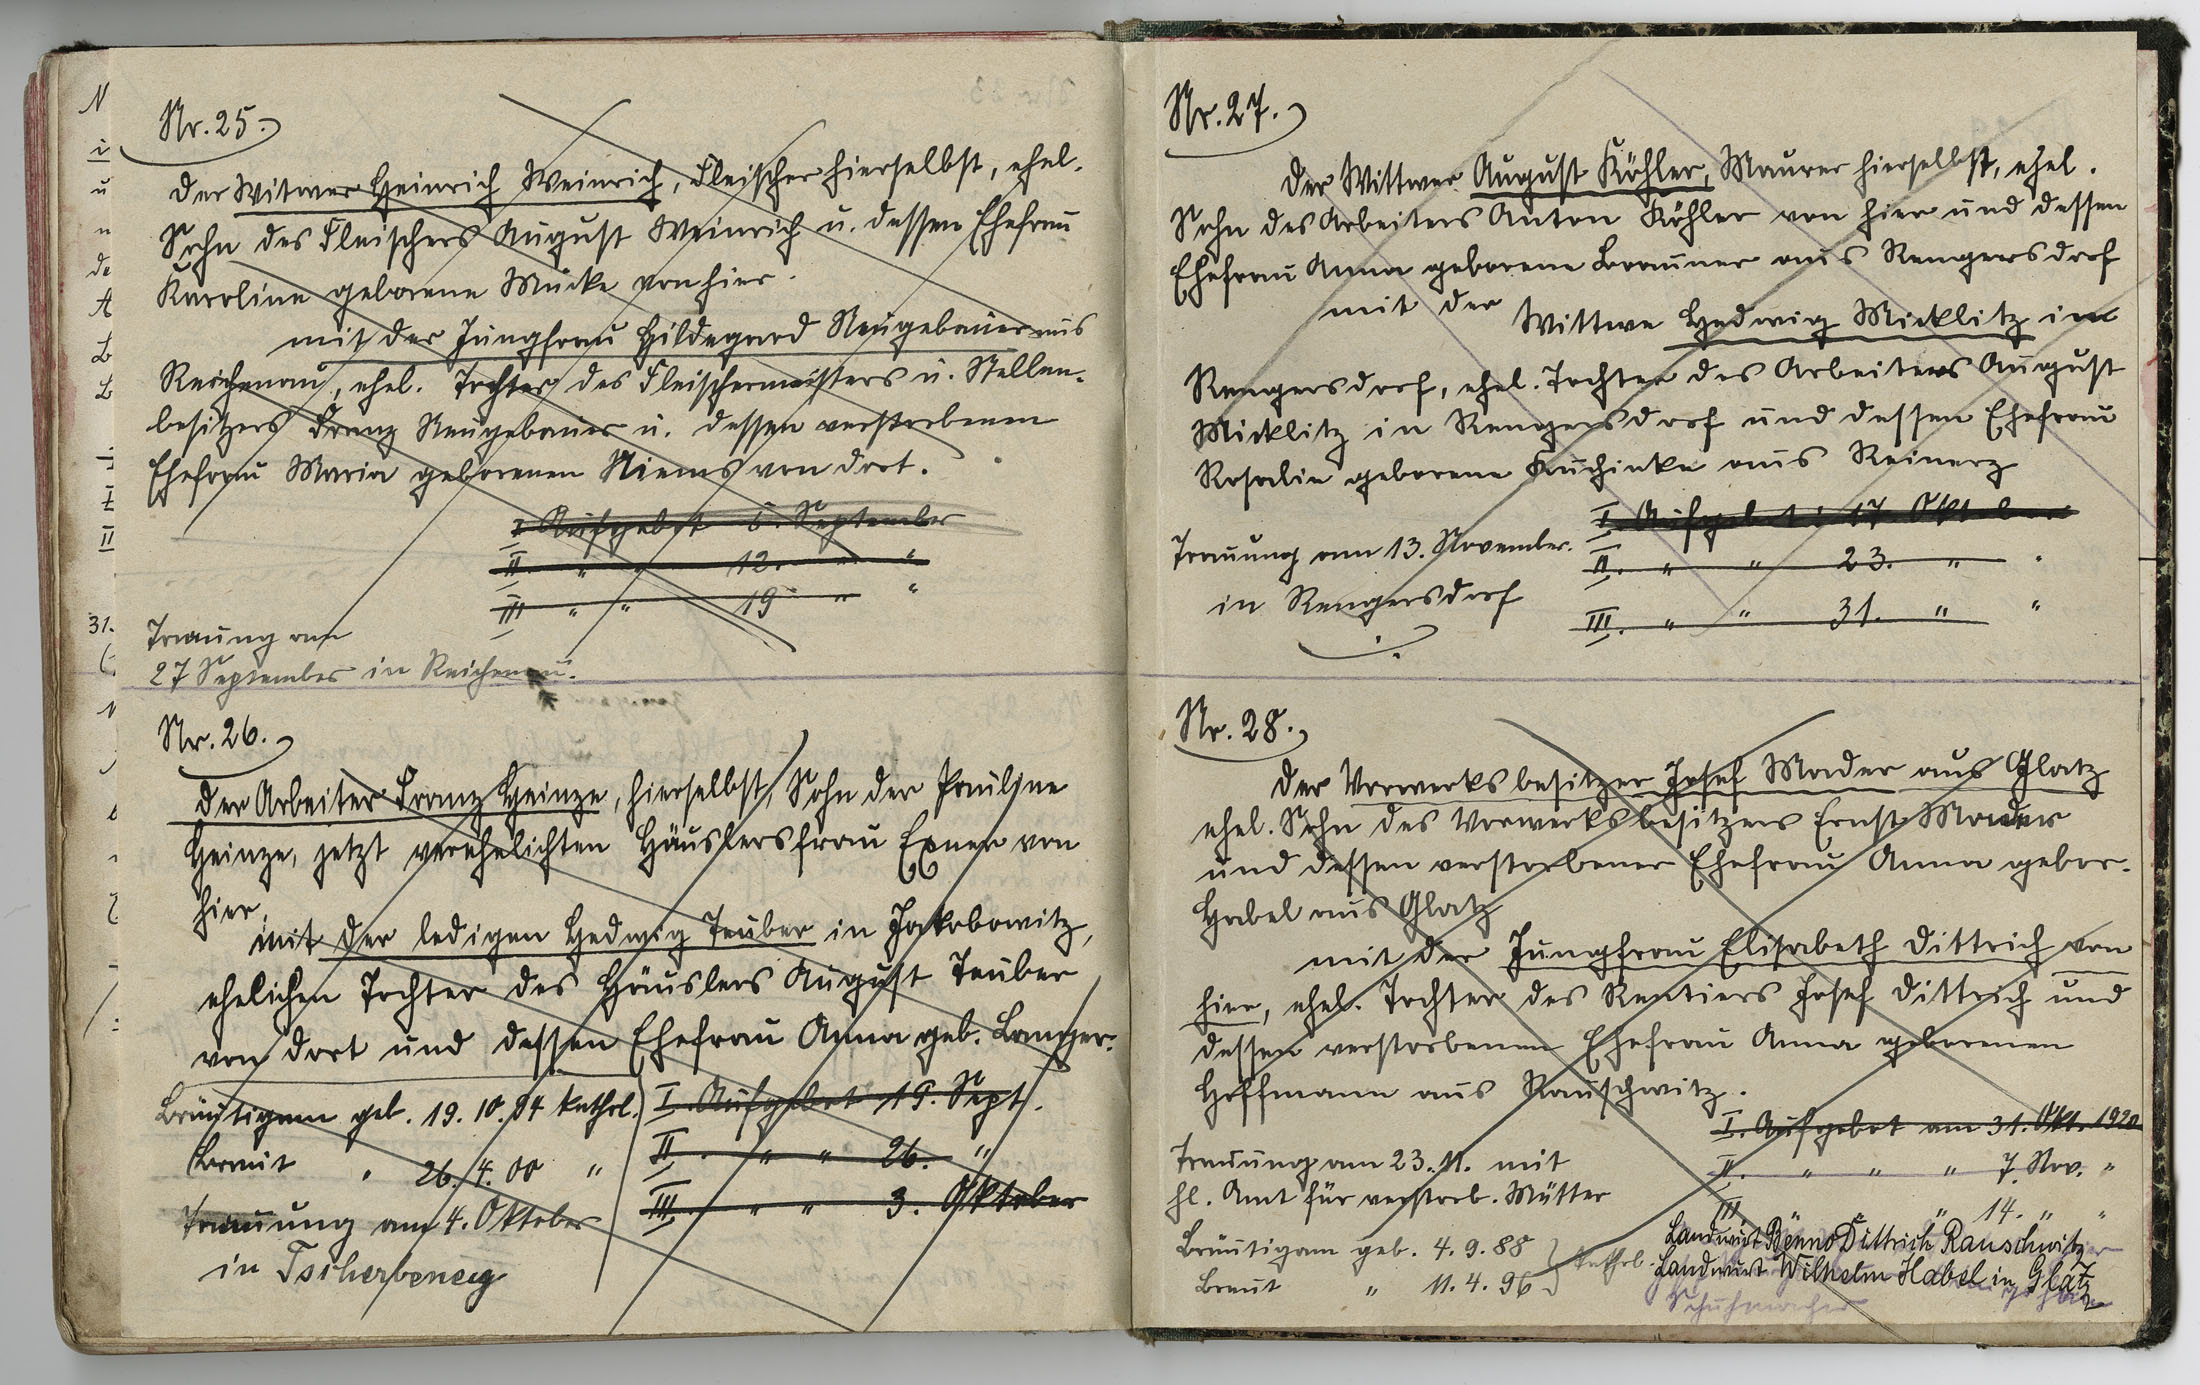 Nr. 25.
Der Witwer Heinrich Weinrich, Fleischer hierselbst, ehel.
Sohn des Fleischers August Weinrich u. dessen Ehefrau
Karoline geborene Mücke von hier.
mit der Jungfrau Hildegard Neugebauer aus
Reichenau, ehel. Tochter des Fleischermeisters u. Stellen-
besitzers Franz Neugebauer u. dessen verstorbenen
Ehefrau Maria geborenen Niems von dort.
I Aufgebot 5. September
II. " " 12. " "
III " " 19 " "
Trauung am
27 September in Reichenau.
Nr. 26.
Der Arbeiter Franz Heinze, hierselbst, Sohn der Pauline
Heinze, jetzt verehelichten Häuslersfrau Exner von
hier.
mit der ledigen Hedwig Teuber in Jakobowitz,
ehelichen Tochter des Häuslers August Teuber
von dort und dessen Ehefrau Anna geb. Langer.
Bräutigam geb. 19. 10. 94 kathol.
Braut " 26. 4. 00 "
I. Aufgebot 19. Sept.
II. " " 26. "
III. " " 3. Oktober
Trauung am 4. Oktober
in Tscherbeney
Nr. 27.
Der Wittwer August Köhler, Maurer hierselbst, ehel.
Sohn des Arbeiters Anton Köhler von hier und dessen
Ehefrau Anna geborene Brauner aus Rengersdorf
mit der Wittwe Hedwig Micklitz in
Rengersdorf, ehel. Tochter des Arbeiters August
Micklitz in Rengersdorf und dessen Ehefrau
Rosalie geborene aus Reinerz
I. Aufgebot: 17. Oktober
II. " " 23. " "
III. " " 31. " "
Trauung am 13. November.
in Rengersdorf
Nr. 28.
Der Vorwerksbesitzer Josef Mader aus Glatz
ehel. Sohn des Vorwerksbesitzers Ernst Mader
und dessen verstorbener Ehefrau Anna gebor.
Habel aus Glatz
mit der Jungfrau Elisabeth Dittrich von
hier, ehel. Tochter des Rentiers Josef Dittrich und
dessen verstorbenen Ehefrau Anna geborenen
Hoffmann aus Rauschwitz.
I. Aufgebot am 31. Okt. 1920
II. " " " 7. Nov. "
III " " " 14. " "
Trauung am 23. 11. mit
hl. Amt für verstorb. Mütter
Bräutigam geb. 4. 9. 88
Braut " 11. 4. 96
kathol.
Landwirt Benno Dittrich Rauschwitz
Landwirt Wilhelm Habel in Glatz
Schuhmacher